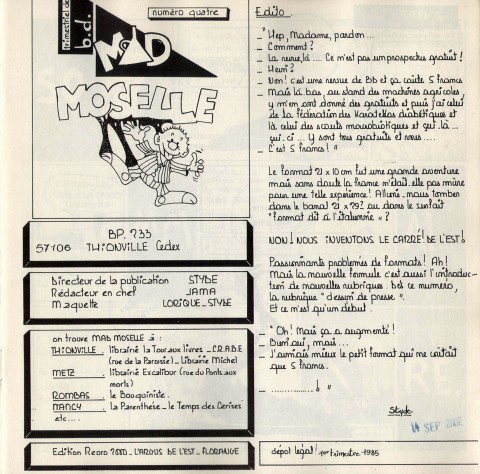 trimestriel de
b.d.
numéro quatre
MAD
MOSELLE
BP. 233
57106 THIONVILLE Cedex
Directeur de la publication STYDE
Rédacteur en chef JAMA
Maquette LORIQUE_STYDE
on trouve MAD MOSELLE à :
THIONVILLE _ librairie la Tour aux livres _ C.R.A.B.E
(rue de la Paroisse) _ Librairie Michel
METZ _ librairie Excalibur (rue du Ponts aux
morts)
ROMBAS _ le Bouquiniste.
NANCY _ la Parenthèse _ le Temps des Cerises
etc ....
Edition Repro 2000 _ L'ARGUS DE L'EST _ FLORANGE
Edito
_ "Hep, Madame, pardon ...
_ Comment ?
_ La revue, là .... Ce n'est pas un prospectus gratuit !
_ Hein ?
_ Non ! c'est une revue de BD et ça coûte 5 francs
_ Mais là bas, au stand des machines agricoles,
y m'en ont donné des gratuits et puis j'ai celui
de la fédération des Karatékas diabétiques et
là celui des scouts et qui là ....
qui .. ci ... Y sont tous gratuits et vous ....
_ C'est 5 francs ! "
Le format 21 x 10 cm fut une grande aventure
mais sans doute la France n'était elle pas mûre
pour une telle expérience ! Allions-nous tomber
dans le banal 21 x 29,7 ou dans le surfait
"format dit à l'italienne" ?
NON ! NOUS INVENTONS LE CARRÉ ! DE L'EST !
Passionnants problèmes de formats ! Ah !
Mais la nouvelle formule c'est aussi l'introduc-
tion de nouvelles rubriques. Dès ce numéro,
la rubrique "dessin de presse".
Et ce n'est qu'un début.
_ "Oh ! Mais ça a augmenté !
_ Ben oui, mais ...
_ J'aimais mieux le petit format qui ne coûtait
que 5 francs.
_ ............ ! "
Styde
SEP 2002
dépôt légal : 1er trimestre 1985